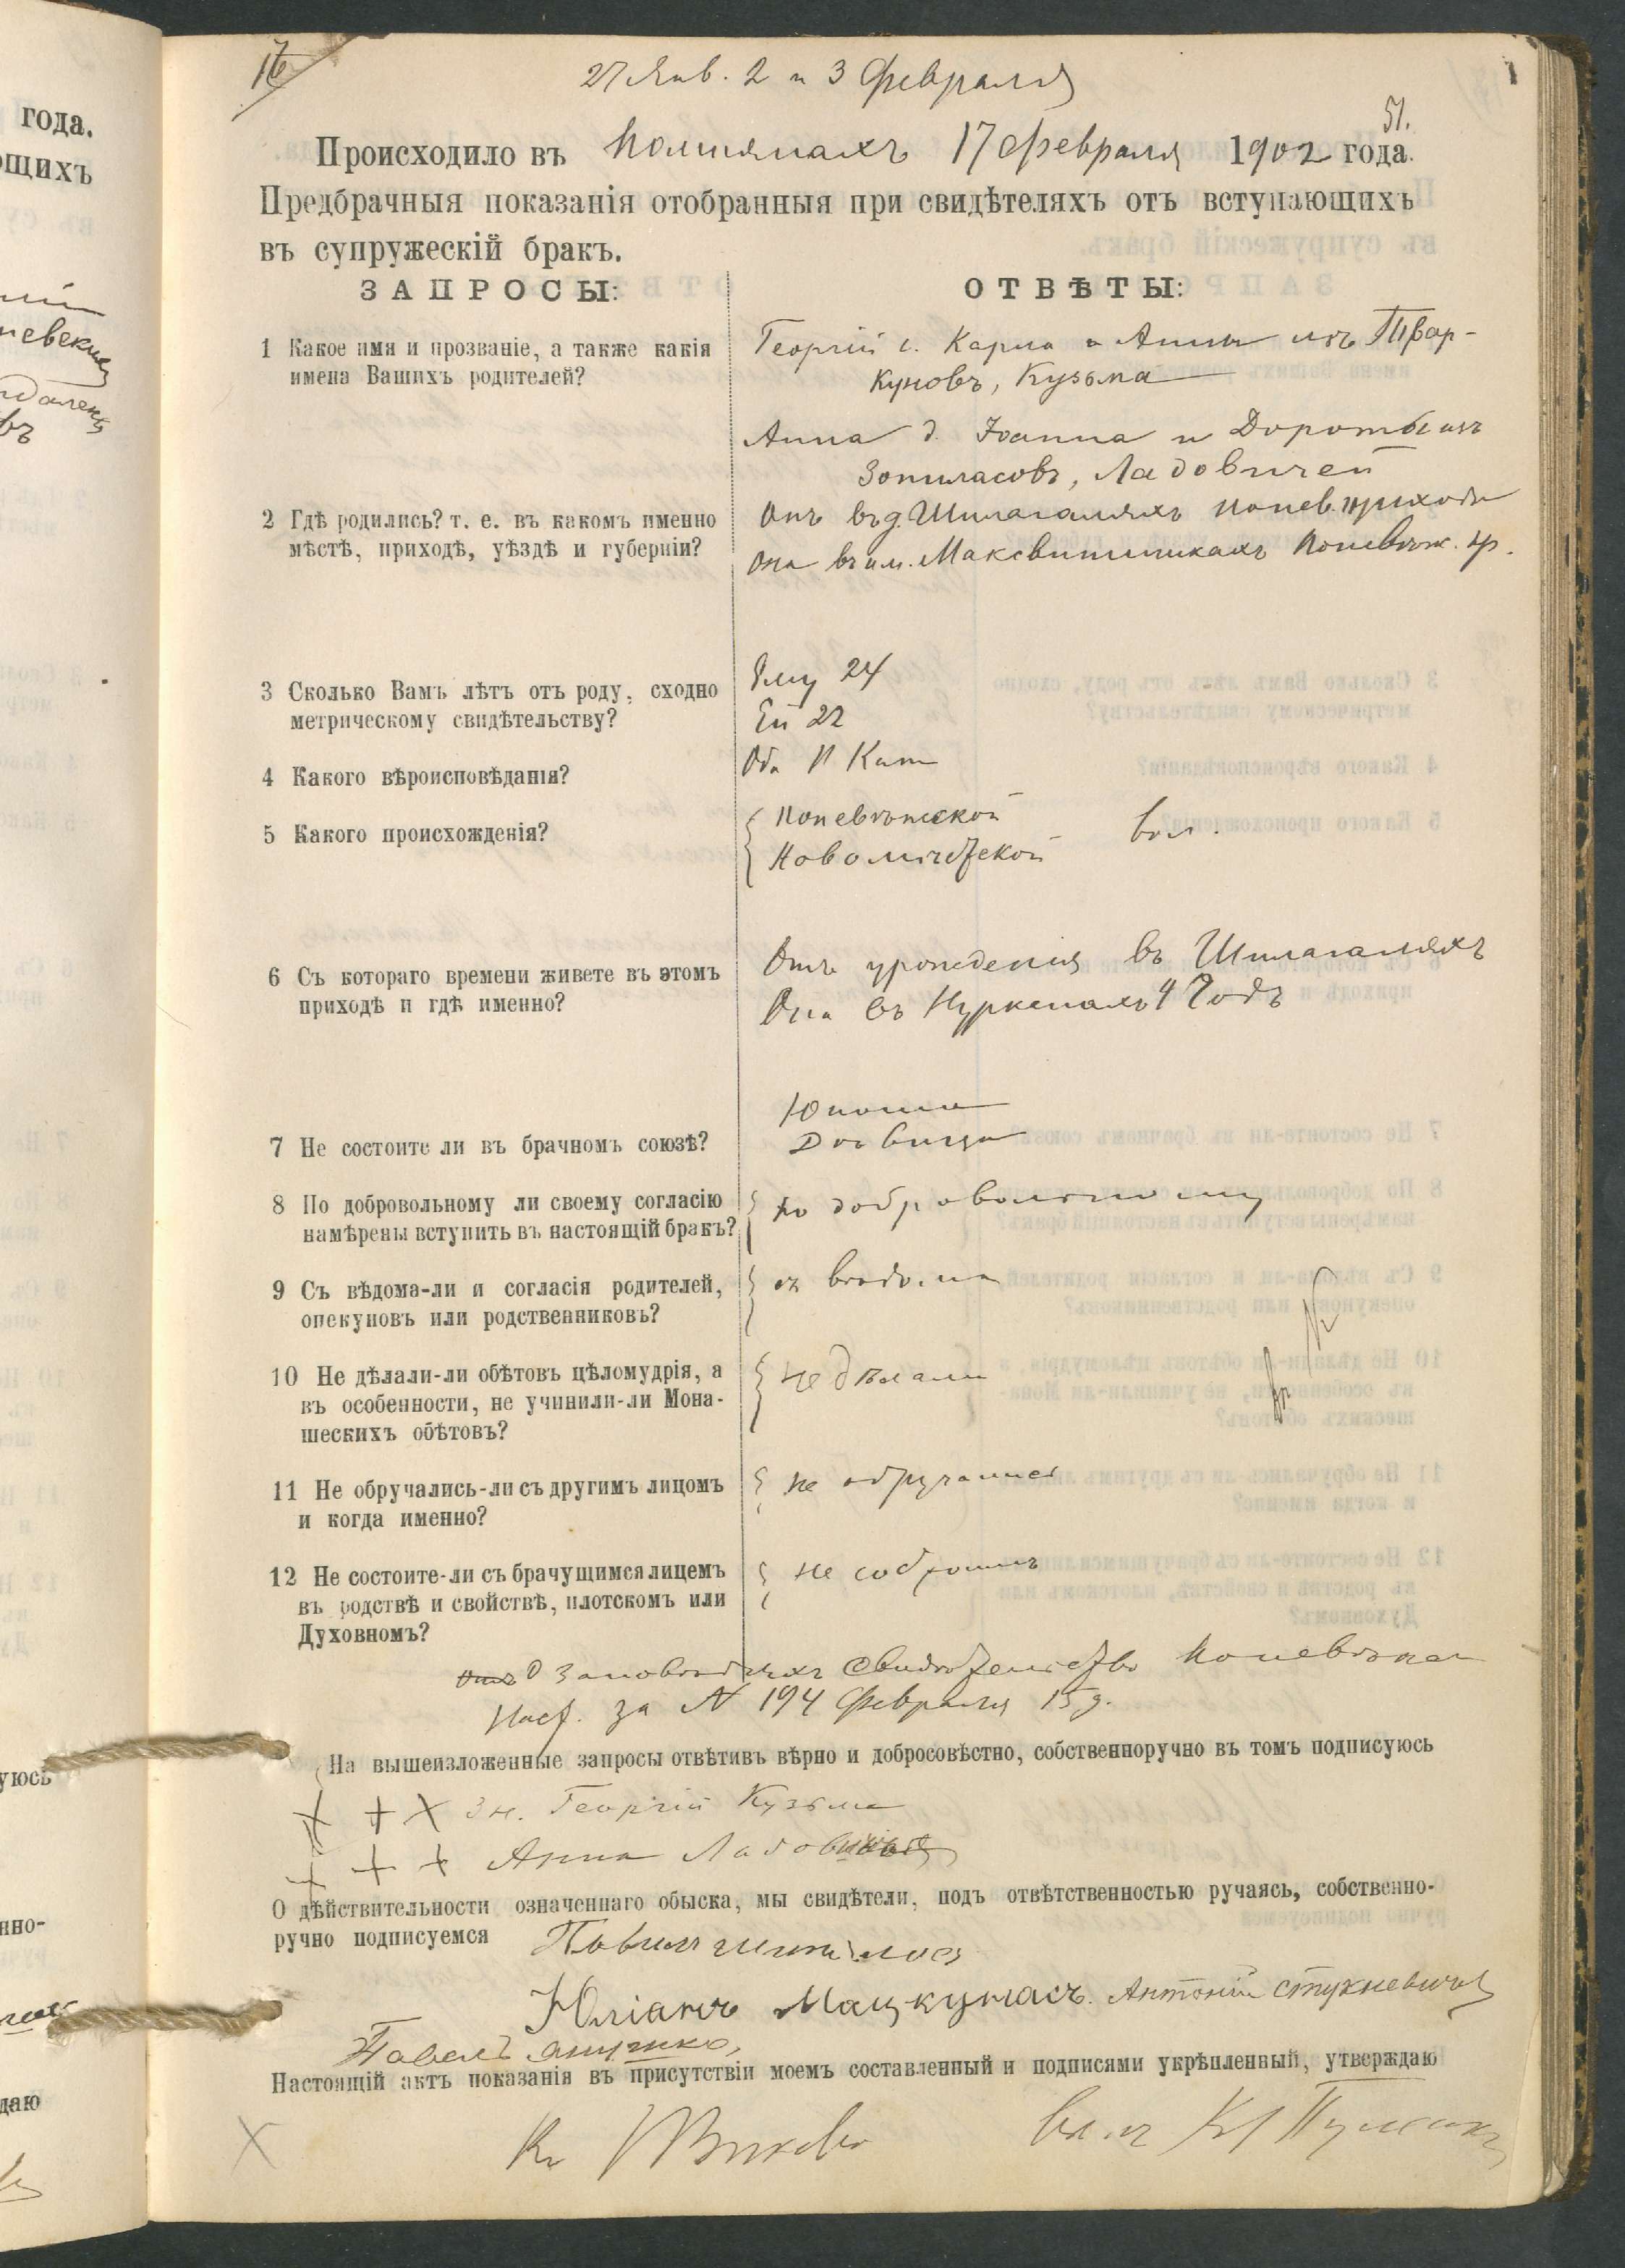 года.
ющихъ
16
27 Янв. 2 и 3 Февраля
51.
Происходило въ 17 Февраля 1902 года.
Предбрачныя показанія отобранныя при свидѣтеляхъ отъ вступающихъ
въ супружескій бракъ.
ЗАПРОСЫ:
ОТВѢТЫ:
1 Какое имя и прозваніе, а также какія
имена Вашихъ родителей?
Георгій с. Карла и Анны изъ Твар-
куновъ, Кузьма
Анна д. Іоанна и Доротѣи изъ
Ладовичей
2 Гдѣ родились? т. е. въ какомъ именно
мѣстѣ, приходѣ, уѣздѣ и губерніи?
Онъ въ д. Шилагаляхъ понев. прихода
Она въ им. Поневѣж. пр.
3 Сколько Вамъ лѣтъ отъ роду, сходно
метрическому свидѣтельству?
Ему 24
Ей 22
4 Какого вѣроисповѣданія?
Оба Р Кат
5 Какого происхожденія?
Поневѣжской
Новомѣстской
вол.
6 Съ котораго времени живете въ этомъ
приходѣ и гдѣ именно?
Онъ урожденія въ Шилагаляхъ
Она въ 4 годъ
7 Не состоите ли въ брачномъ союзѣ?
Юноша
Дѣвица
8 По добровольному ли своему согласію
намѣрены вступить въ настоящій бракъ?
по добровольному
9 Съ вѣдома-ли и согласія родителей,
опекуновъ или родственниковъ?
съ вѣдома
10 Не дѣлали-ли обѣтовъ цѣломудрія, а
въ особенности, не учинили-ли Мона-
шескихъ обѣтовъ?
не дѣлали
11 Не обручались-ли съ другимъ лицомъ
и когда именно?
не обручались
12 Не состоите-ли съ брачущимся лицемъ
въ родствѣ и свойствѣ, плотскомъ или
Духовномъ?
не
О заповѣдяхъ свидѣтельство Поневѣжаг
Наст. за № 194 Февраля 15 д.
На вышеизложенные запросы отвѣтивъ вѣрно и добросовѣстно, собственноручно въ томъ подписуюсь
+ + + Георгій Кузьма
+ + + Анна
О дѣйствительности означеннаго обыска, мы свидѣтели, подъ отвѣтственностью ручаясь, собственно-
ручно подписуемся
Юліанъ Мацкунасъ. Антоній Стукневичъ
Павелъ
Настоящій актъ показанія въ присутствіи моемъ составленный и подписями укрѣпленный, утверждаю